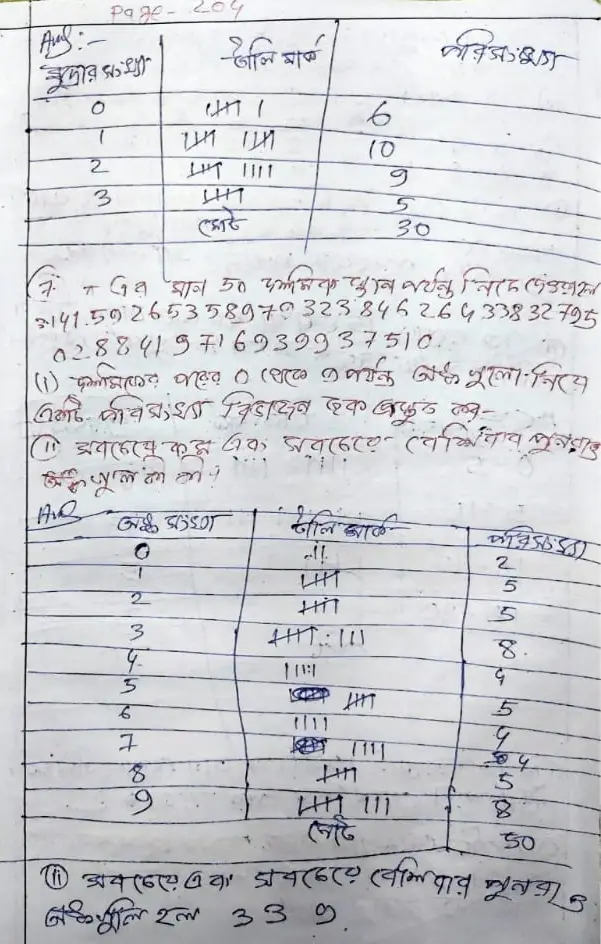 Page - 204
Ans :-
মুদ্রার সংখ্যা টালি মার্ক পরিসংখ্যা
0 |||| | 6
1 |||| |||| 10
2 |||| |||| 9
3 |||| 5
মোট 30
7. π এর মান 50 দশমিক স্থান পর্যন্ত নিচে দেওয়া
3.141.5926535897932384626433832795
0288419716939937510.
(i) দশমিকের পরের 0 থেকে 9 পর্যন্ত অঙ্ক গুলো নিয়ে
একটি পরিসংখ্যা বিভাজন ছক প্রস্তুত কর-
(ii) সবচেয়ে কম এবং সবচেয়ে বেশিবার
অঙ্ক গুলি কী কী?
Ans অঙ্ক সংখ্যা টালি মার্ক পরিসংখ্যা
0 || 2
1 |||| 5
2 |||| 5
3 |||| ||| 8
4. |||| 4
5 |||| 5
6 |||| 4
7 |||| 4
8 |||| 5
9 |||| ||| 8
মোট 50
(ii) সবচেয়ে এবং সবচেয়ে বেশিবার
অঙ্কগুলি হল 3 3 9.